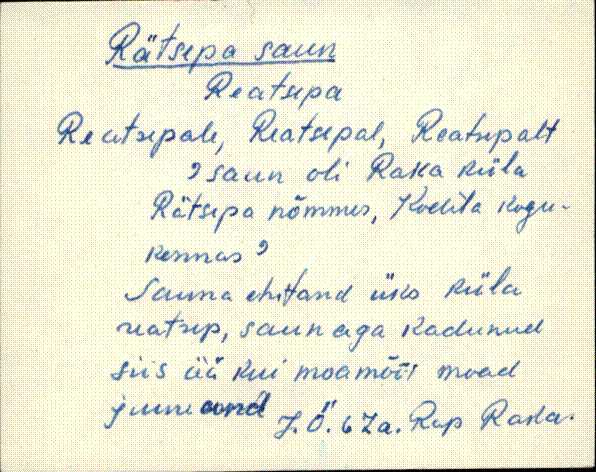 Rätsepa saun
Reatsepa
Reatsepale, Reatsepal, Reatsepalt
, saun oli Raka küla
Rätsepa nõmmes, Koekila kogu-
kennas ,
Sauna ehitand üks küla
reatsep, saun aga kadunud
siis ää kui moamõõt moad
J. Ö. 67a. Rap Raka.